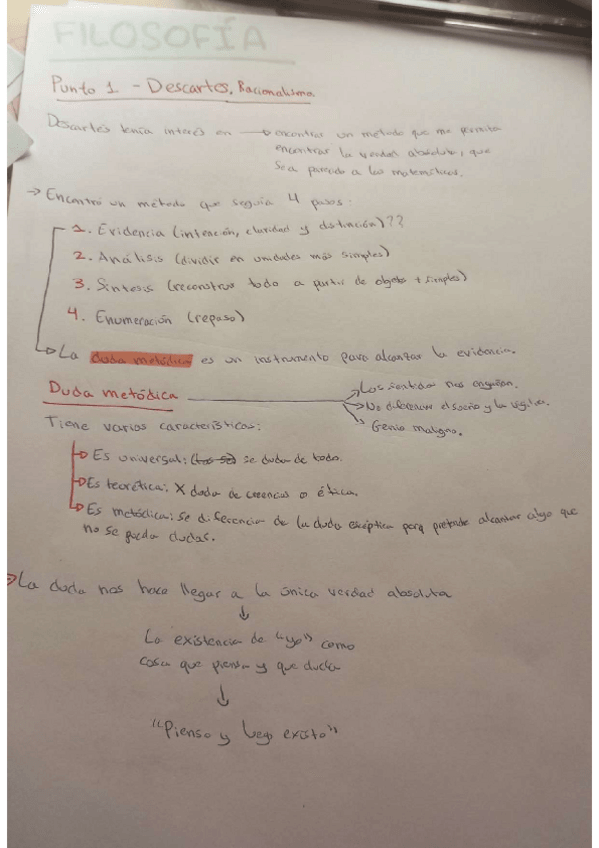 FILOSOFÍA
Punto 1 - Descartes. Racionalismo
Descartes tenía interés en → encontrar un método que me permita
encontrar la verdad absoluta, que
sea parecido a las matemáticas.
→ Encontró un método que seguía 4 pasos:
1. Evidencia (intención, claridad y distinción)??
2. Análisis (dividir en unidades más simples)
3. Síntesis (reconstruir todo a partir de objetos + simples)
4. Enumeración (repaso)
→ La duda metódica es un instrumento para alcanzar la evidencia.
Duda metódica
→ Los sentidos nos engañan.
→ No diferenciar el sueño y la vigilia.
→ Genio maligno.
Tiene varias características:
→ Es universal: se duda de todo.
→ Es teorética: X duda de creencias o ética.
→ Es metódica: se diferencia de la duda escéptica porq pretende alcanzar algo que
no se pueda dudar.
→ La duda nos hace llegar a la única verdad absoluta
↓
La existencia de "yo" como
cosa que piensa y que duda
↓
"Pienso y luego existo"